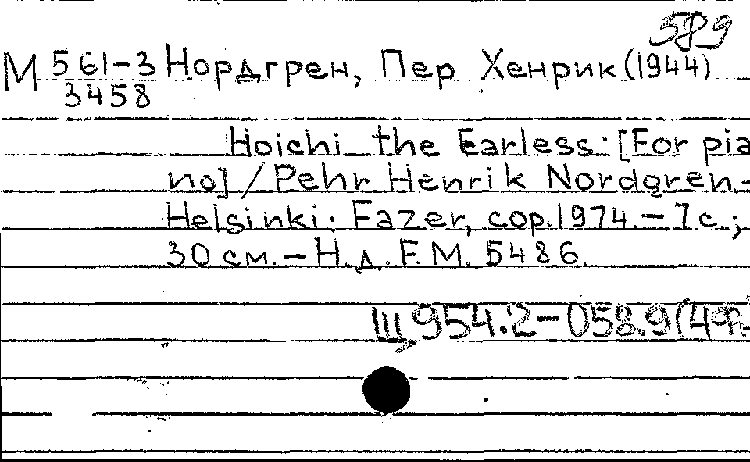 589
М 561-3 Нордгрен, Пер Хенрик (1944)
3458
Hoichi the Earless: [For pia
no] / Pehr Henrik Nordgren-
Helsinki: Fazer, cop. 1974. – 7 с.;
30 см. – Н. д. F. M. 5486.
Щ 954.2-058.9(4Фи-